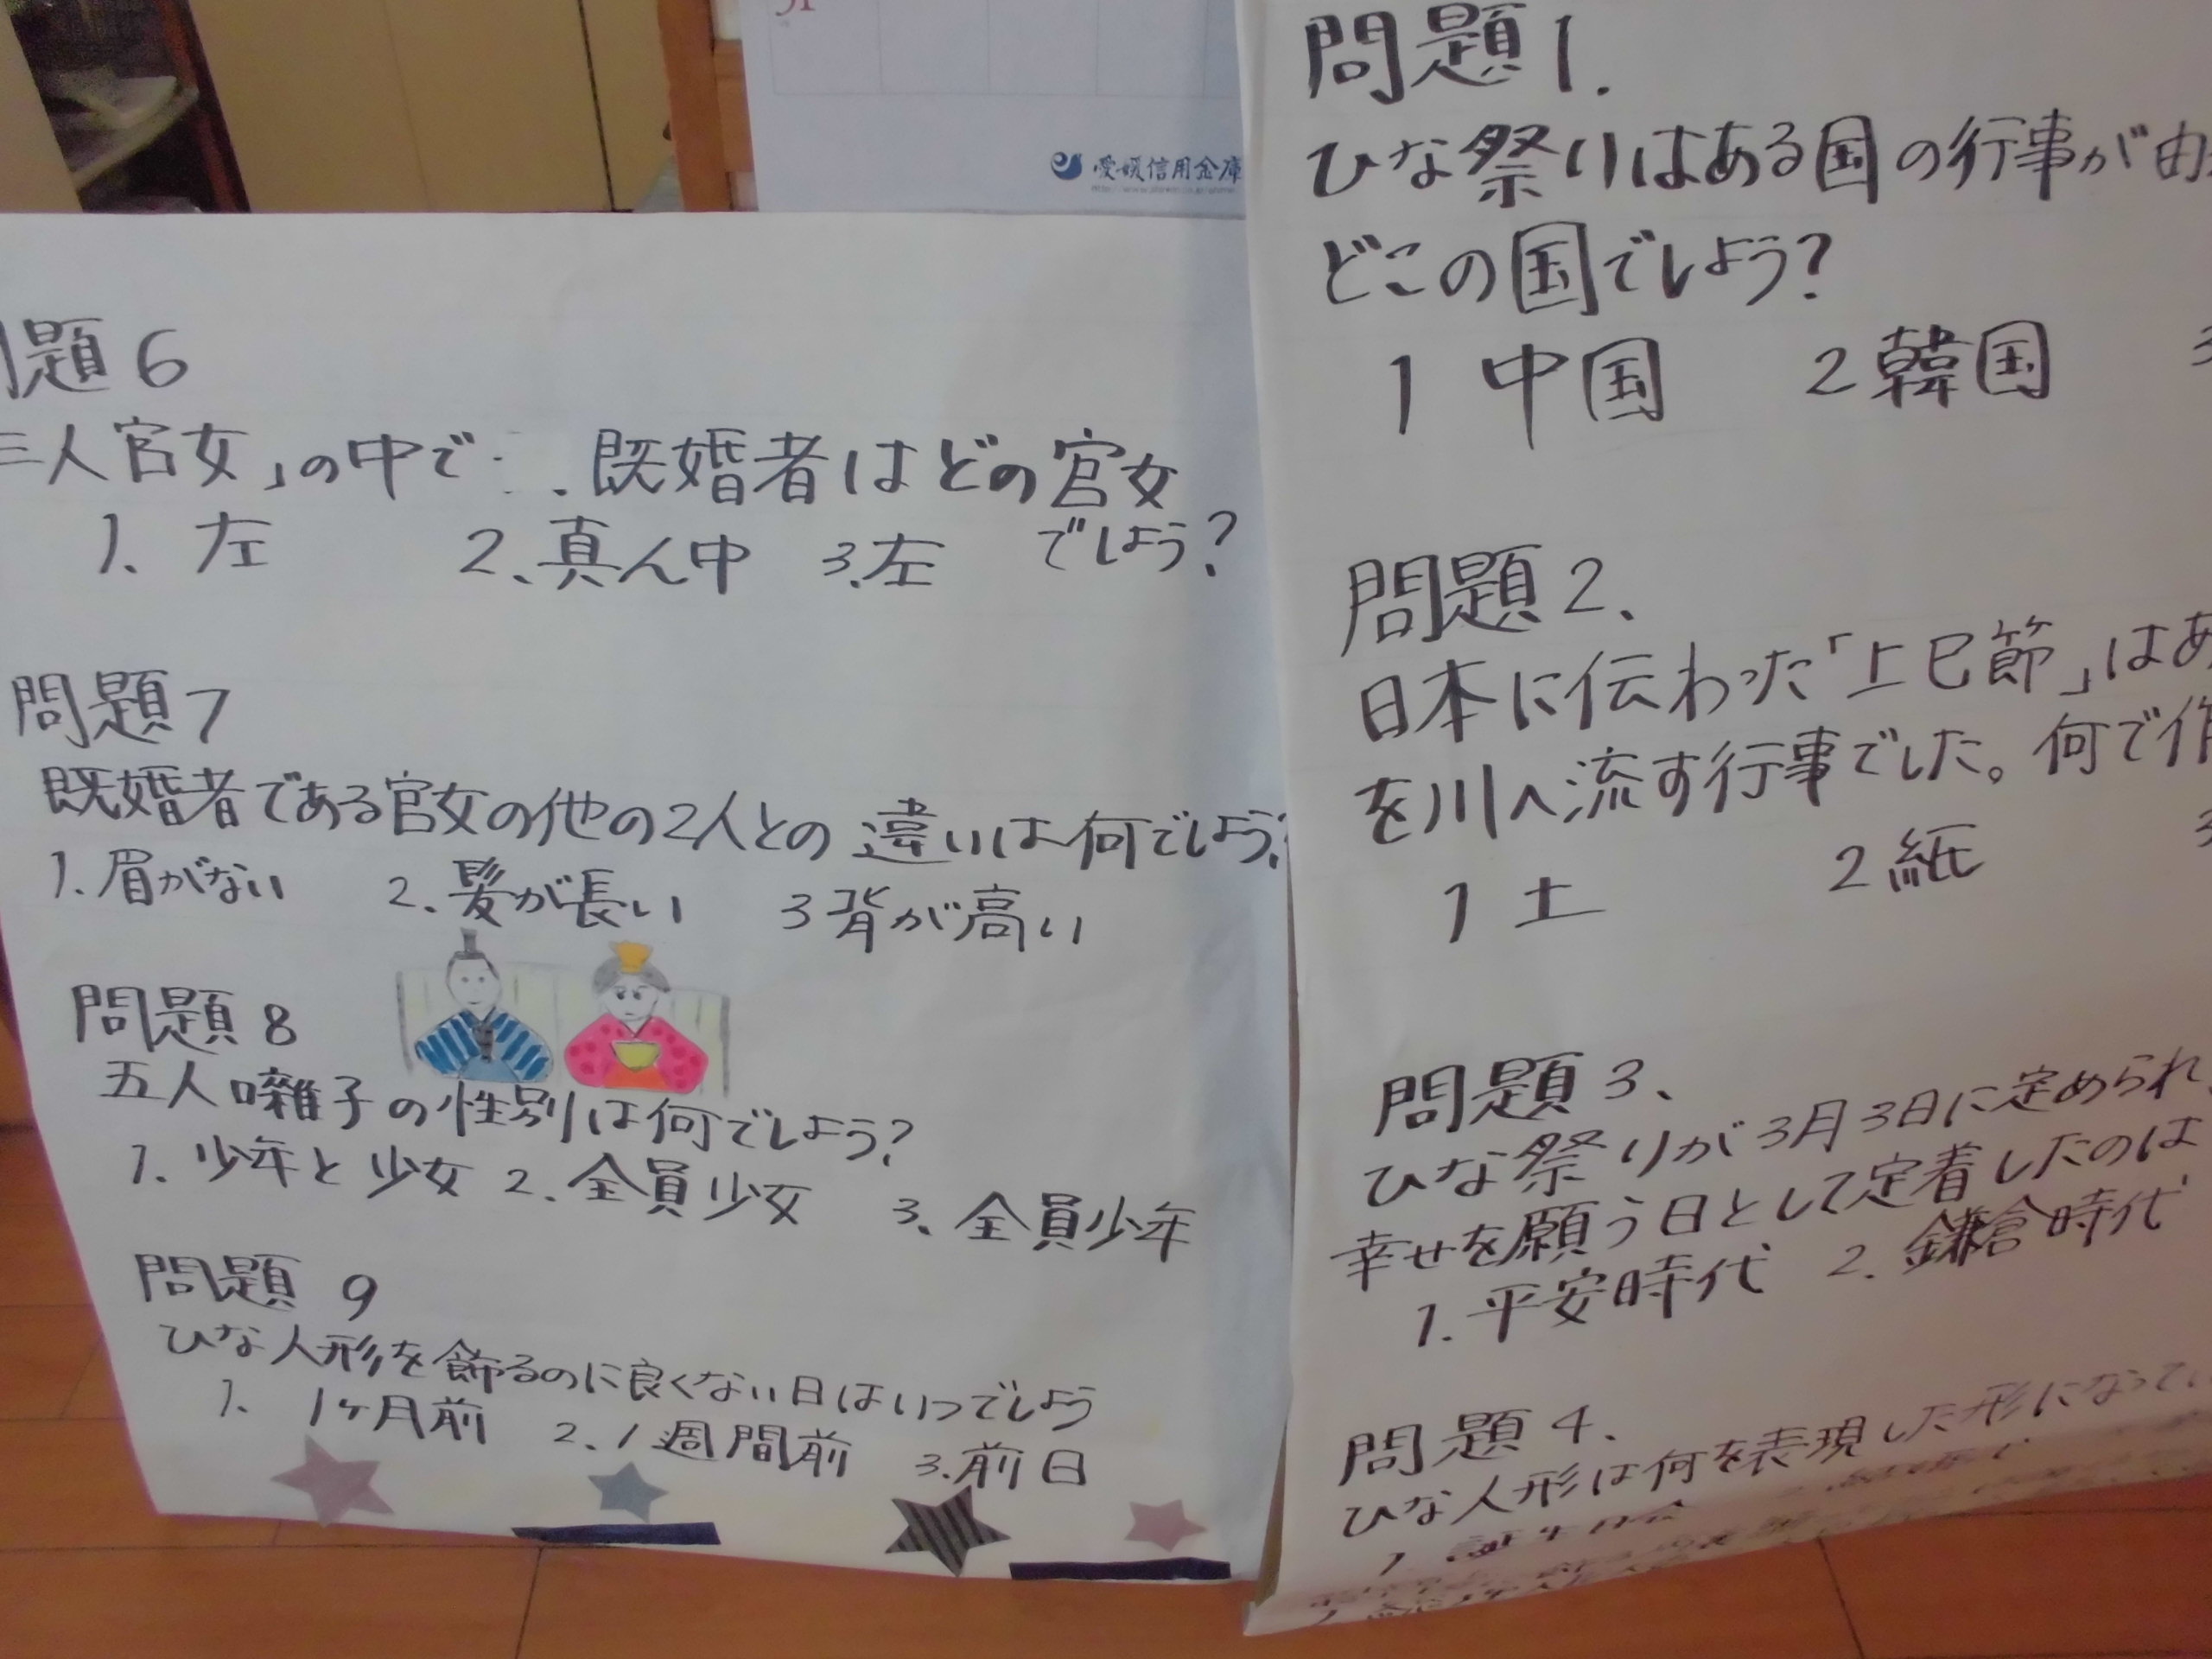 31
愛媛信用金庫
題6
三人官女」の中で 既婚者はどの官女
でしょう?
1、左 2、真ん中 3.左
問題7
既婚者である官女の他の2人との違いは何でしょう?
1.眉がない 2.髪が長い 3背が高い
問題8
五人囃子の性別は何でしょう?
1.少年と少女 2.全員少女 3、全員少年
問題9
ひな人形を飾るのに良くない日はいつでしょう
1、1ヶ月前 2、1週間前 3.前日
問題1.
ひな祭りはある国の行事が由
どこの国でしょう?
1 中国 2韓国 3
問題2、
日本に伝わった「上巳節」はあ
を川へ流す行事でした。何で作
1 土 2紙 3
問題3、
ひな祭りが3月3日に定められ
幸せを願う日として定着したのは
1.平安時代 2.鎌倉時代
問題4.
ひな人形は何を表現した形になってい